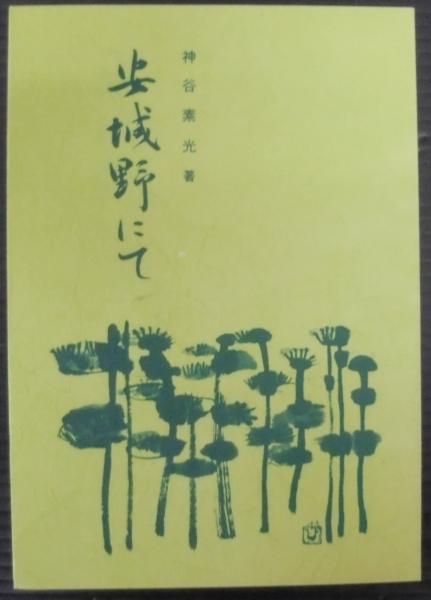 神谷素光著
安城野にて